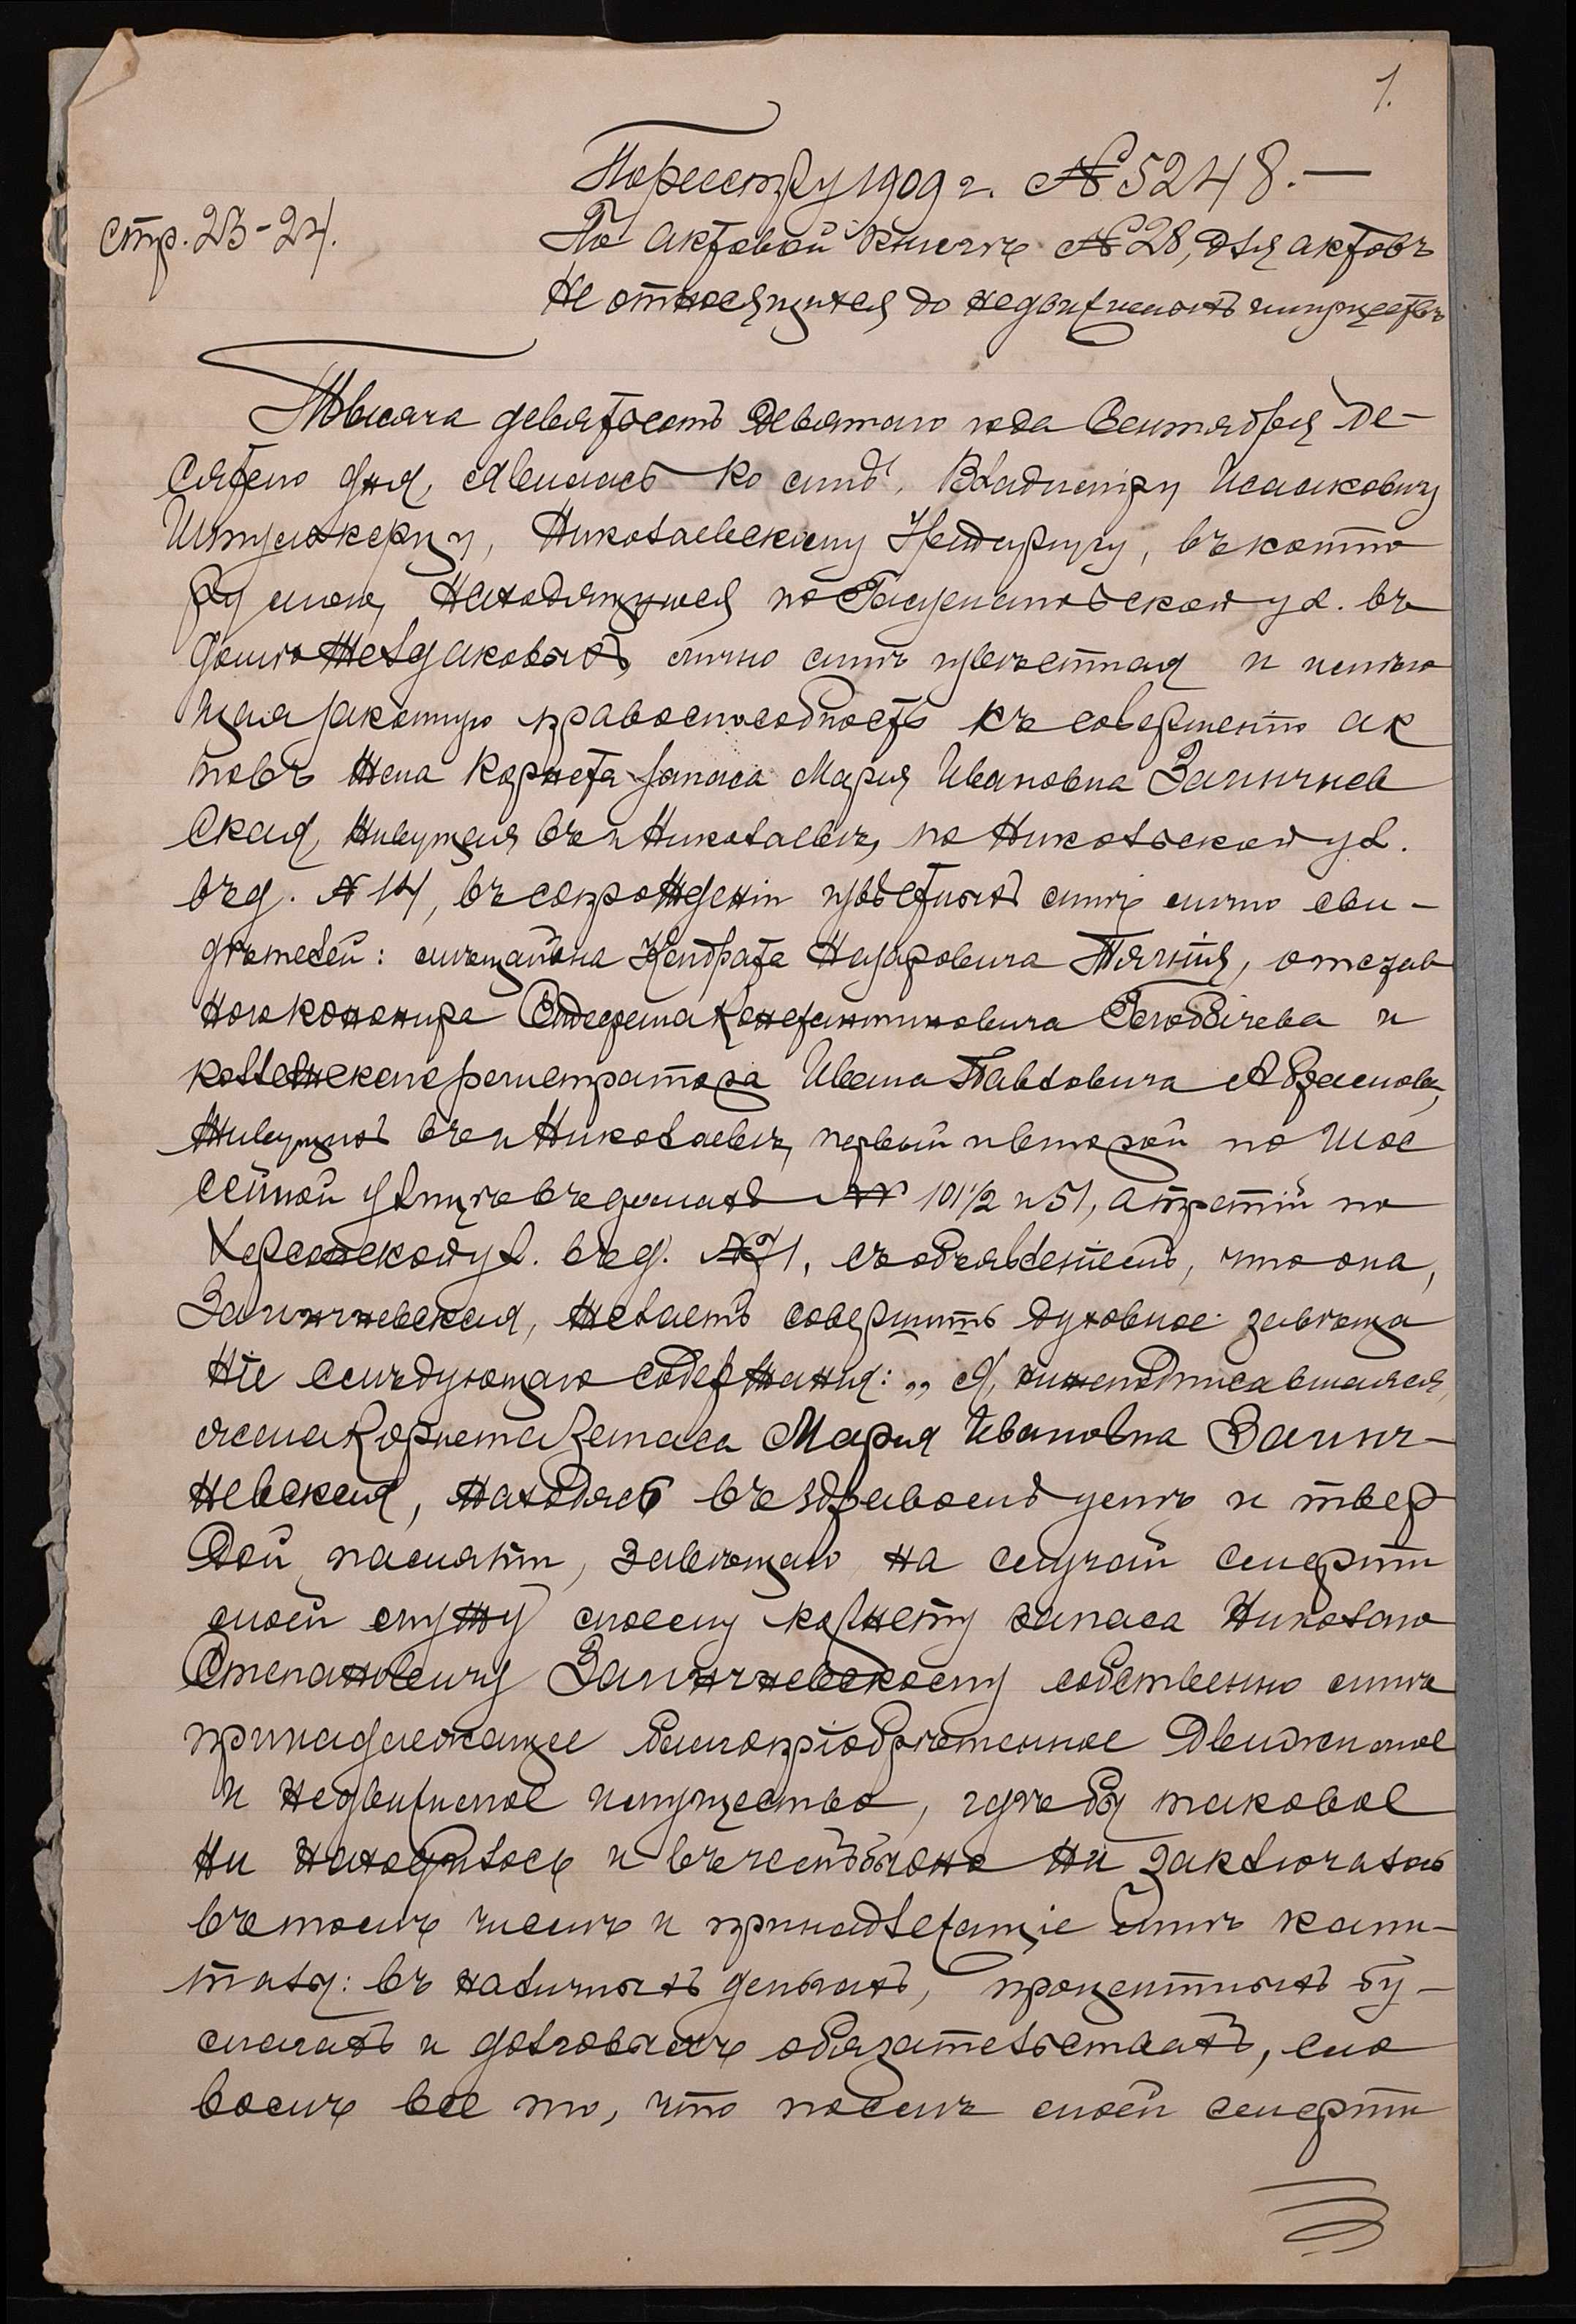 1.
По реестру 1909 г. № 5248.—
стр. 23-24.
По актовой книгѣ № 28, для актовъ
не относящихся до недвижимыхъ имуществъ
Тысяча девятьсотъ девятаго года Сентября де-
сятаго дня, явилась ко мнѣ, Владиміру Исааковичу
Николаевскому Нотаріусу, въ конто
ру мою, находящуюся по ул. въ
домѣ лично мнѣ извѣстная и имѣю
щая законную правоспособность къ совершенію ак
товъ жена Корнета запаса Марія Ивановна Загничнев
ская, живущая въ г. Николаевѣ, по Никольской ул.
въ д. № 14, въ сопрожденіи извѣстныхъ мнѣ лично сви-
дѣтелей: мѣщанина Кондрата Назаровича отстав
ного Константиновича и
коллежскаго регистратора Ивана Павловича
живущихъ въ г. Николаевѣ, первый и второй по Шос
сейной улицѣ въ домахъ №№ 101½ и 51, а третій по
Херсонской ул. въ д. № 71, съ объявленіемъ, что она,
Загничневская, желаетъ совершить духовное завѣща
ніе слѣдующаго содержанія: „Я, нижеподписавшаяся,
жена Корнета Запаса Марія Ивановна Загнич-
невская, находясь въ здравомъ умѣ и твер
дой памяти, завѣщаю на случай смерти
моей мужу моему корнету запаса Николаю
Степановичу Загничневскому собственно мнѣ
принадлежащее благопріобрѣтенное движимое
и недвижимое имущество, гдѣ бы таковое
ни находилось и въ чемъ бы оно ни заключалось
въ томъ числѣ и принадлежащіе мнѣ капи-
талы: въ наличныхъ деньгахъ, процентныхъ бу-
магахъ и долговыхъ обязательствахъ, сло
вомъ все то, что послѣ моей смерти